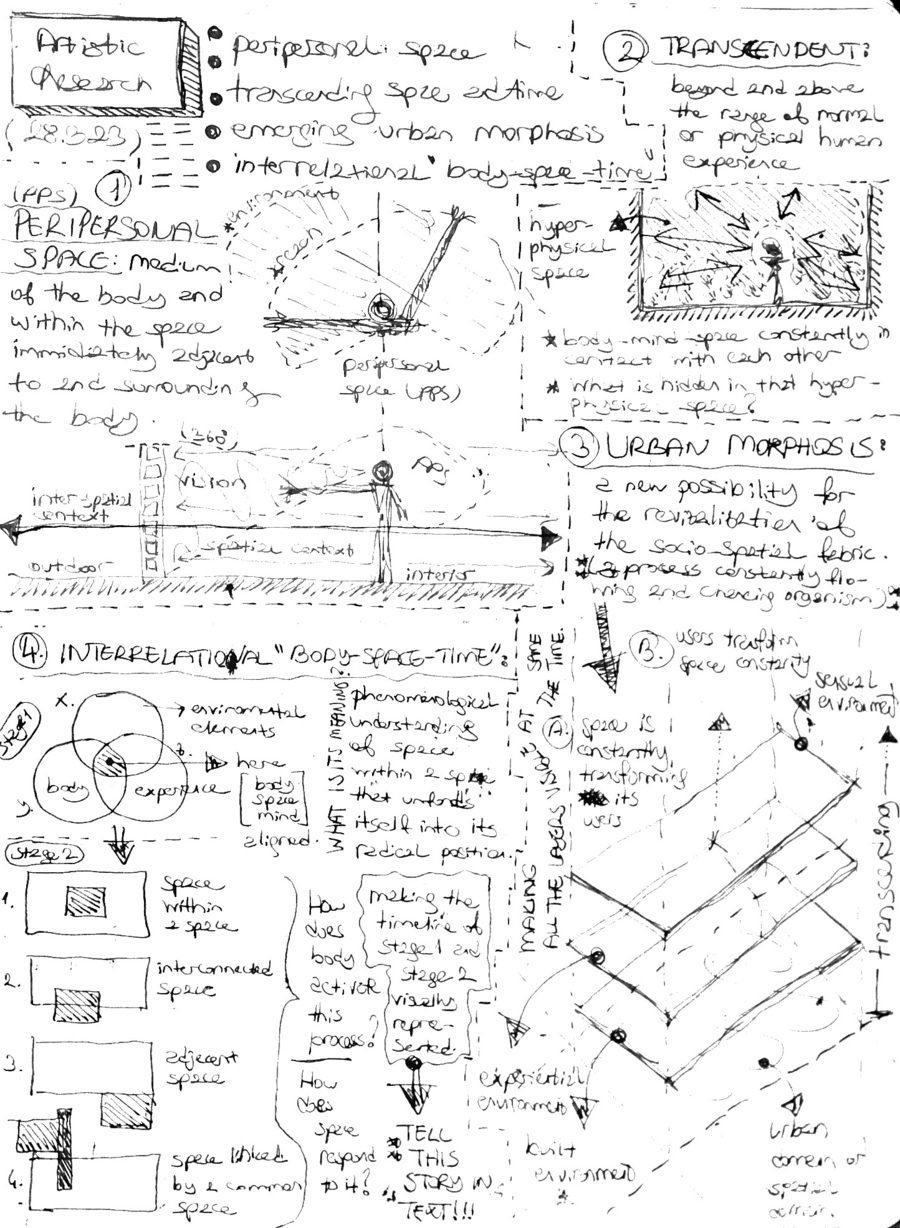 Artistic
Research
(28.3.23)
peripersonal space
transcending space and time
emerging urban morphosis
interrelational "body-space-time"
(PPS) 1
PERIPERSONAL
SPACE: medium
of the body and
within the space
immidiately adjacent
to and surrounding
the body.
*environment
*reach
peripersonal
space (PPS)
2 TRANSCENDENT:
beyond and above
the range of normal
or physical human
experience
hyper-
physical
space
* body-mind-space constantly in
contact with each other
* What is hidden in that hyper-
physical space?
vision
PPS
inter-spatial
context
spatial context
outdoor
interior
3 URBAN MORPHOSIS:
a new possibility for
the revitalitation of
the socio-spatial fabric.
(a process constantly flo-
wing and changing organism)
B. users transform
space constantly
A. space is
constantly
transforming
its
users
MAKING AT THE SAME TIME.
ALL THE LAYERS VISIBLE
sensual
environment
transcending
experiential
environment
built
environment
urban
domain or
spatial
domain
4. INTERRELATIONAL "BODY-SPACE-TIME":
Stage 1
x.
y.
z.
enviromental
elements
body
experience
here
body
space
mind
aligned.
WHAT IS ITS MEANING?
phenomenological
understanding
of space
within a space
that unfolds
itself into its
radical position.
Stage 2
1. space
within
a space
2. interconnected
space
3. adjacent
space
4. space linked
by a common
space
How
does
body
activate
this
process?
How
does
space
respond
to it?
making the
timeline of
stage 1 and
stage 2
visually
repre-
sented.
TELL
THIS
STORY IN
TEXT!!!